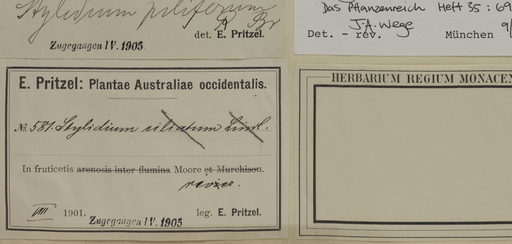 Stylidium piliferum R. Br
Zugegangen IV. 1905
det. E. Pritzel.
Das Pflanzenreich Heft 35: 69
J.A. Wege
Det. - rev. München 9/
E. Pritzel: Plantae Australiae occidentalis.
No. 581. Stylidium ciliatum Lindl.
In fruticetis arenosis inter flumina Moore et Murchison.
river.
VIII 1901. Zugegangen IV. 1905 leg. E. Pritzel.
HERBARIUM REGIUM MONACEN